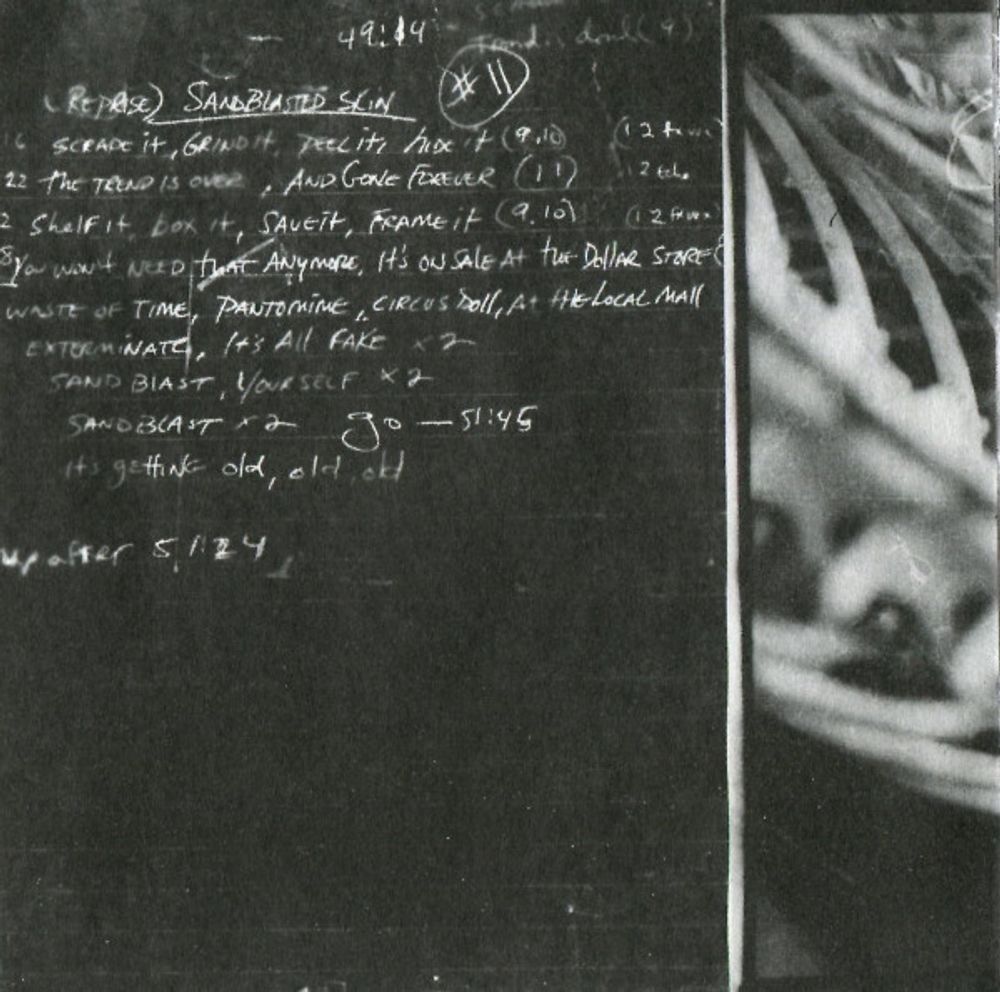 — 49:14
#11
(REPRISE) SANDBLASTED SKIN
16 SCRAPE it, GRIND it, PEEL it, hide it (9,10)
22 THE TREND IS OVER, AND GONE FOREVER (11) 12 echo
2 Shelf it, box it, SAVE it, FRAME it (9,10)
8 You won't NEED that ANYMORE, It's ON SALE At the Dollar STORE
WASTE OF TIME, PANTOMINE, CIRCUS Doll, At tHE LOCAL MAll
EXTERMINATE, It's All FAKE x2
SAND BLAST, YOURSELF x2
SANDBLAST x2 go — 51:45
it's getting old, old, old
up after 51:24